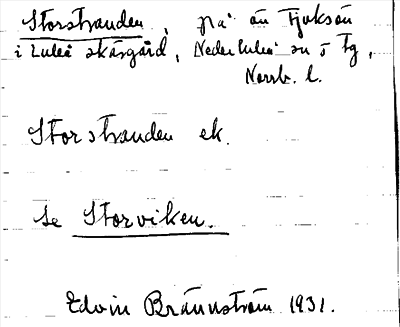 Storstranden, på ön Tjuksön
i Luleå skärgård, Nederluleå sn o tg,
Norrb. l.
Storstranden ek.
Se Storviken.
Edvin Brännström 1931.